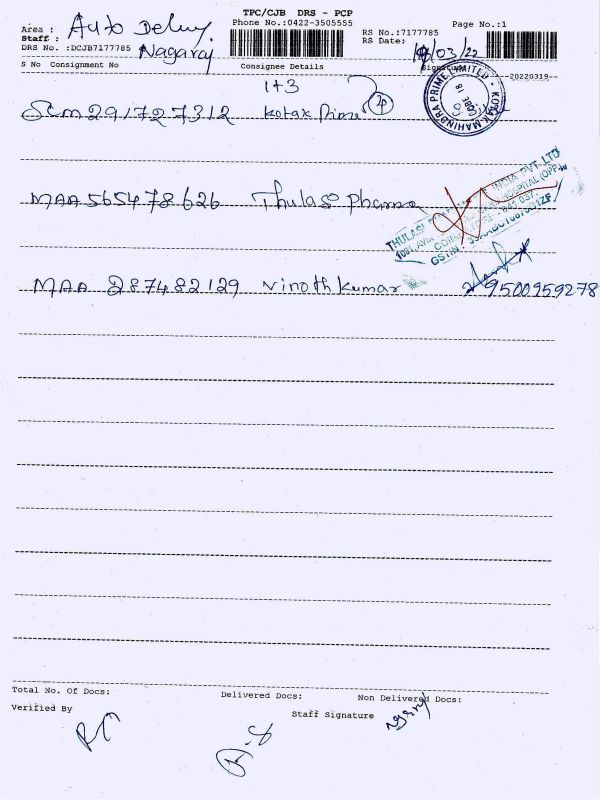 TPC/CJB DRS - PCP
Area : Auto Delivery
Phone No.:0422-3505555
Page No.:1
Staff :
RS No.:7177785
DRS No. :DCJB7177785 Nagaraj
RS Date: 19/03/22
S No Consignment No Consignee Details Signature 20220319
1+3
SCM291727312 Kotak Prime
KOTAK MAHINDRA PRIME LIMITED
MAA565478626 Thulasi Pharma
THULASI INDIA PVT. LTD
GSTIN
MAA 287482129 Vinoth Kumar 9500959278
Total No. Of Docs: Delivered Docs: Non Delivered Docs:
Verified By Staff Signature